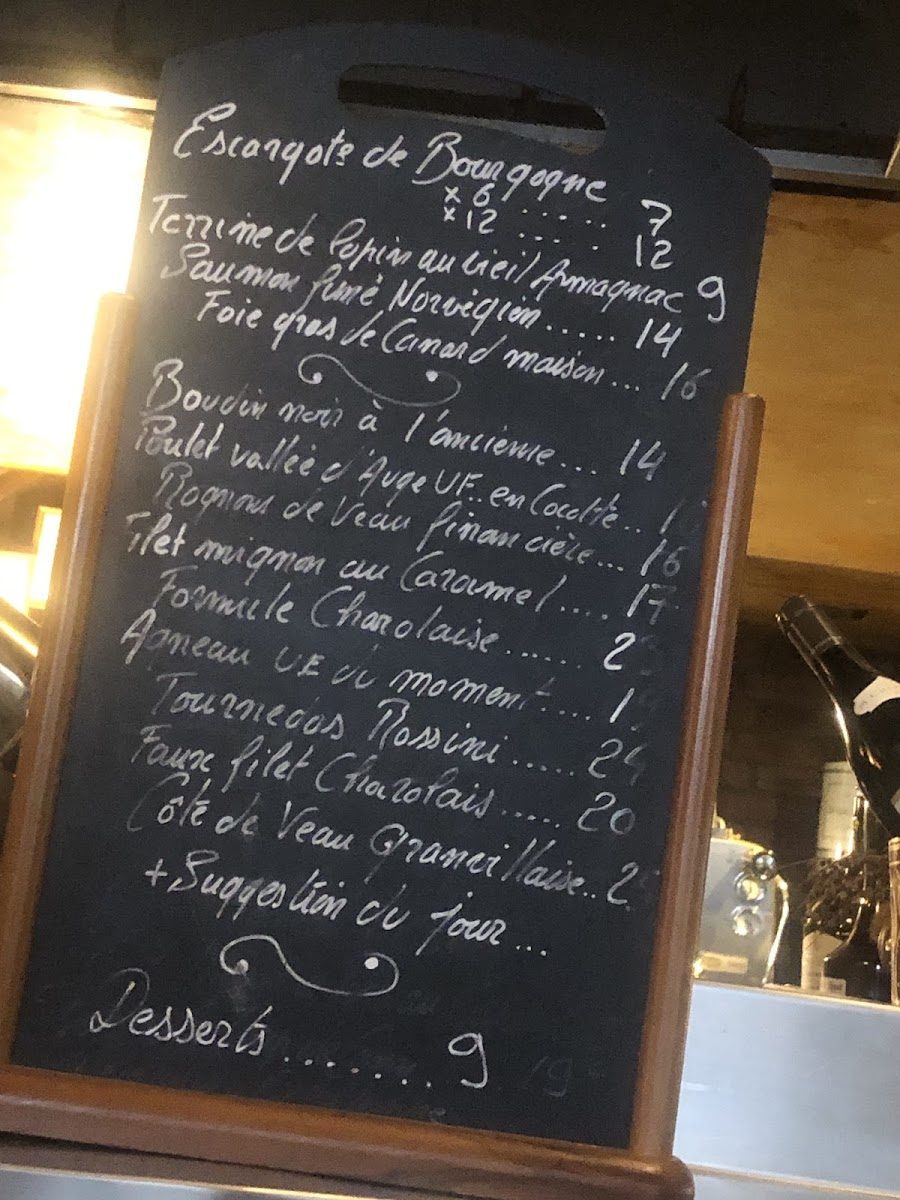 Escargots de Bourgogne
x 6 ..... 7
x 12 ..... 12
Terrine de lapin au vieil Armagnac 9
Saumon fumé Norvégien..... 14
Foie gras de Canard maison... 16
Boudin noir à l'ancienne... 14
Poulet vallée d'Auge UF.. en Cocotte..
Rognons de Veau financière... 16
Filet mignon au Caramel.... 17
Formule Charolaise......
Agneau UE du moment....
Tournedos Rossini..... 24
Faux filet Charolais..... 20
Côte de Veau Granvillaise..
+ Suggestion du jour...
Desserts ....... 9